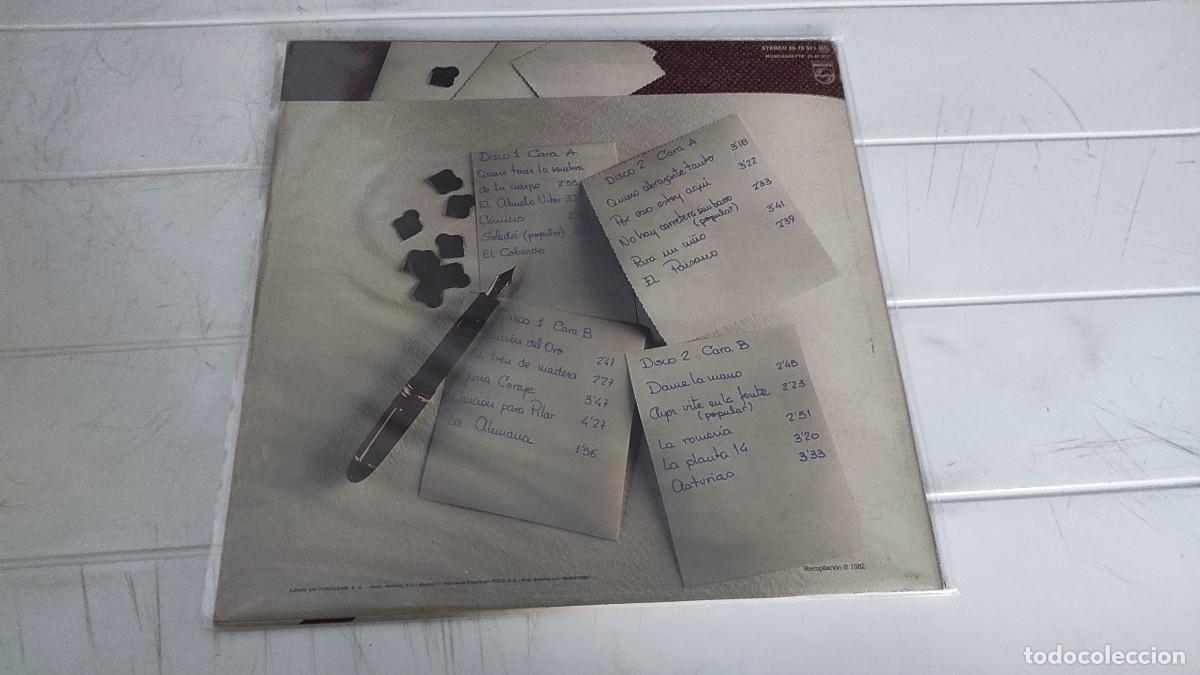 STEREO
Disco 1 Cara A
Quiero tener la sombra
de tu cuerpo 2'55
El Abuelo Vitor
Cómicos
Soledá (popular)
El Cobarde
Disco 2 Cara A
Quiero abrazarte tanto 3'18
Por eso estoy aquí 3'22
No hay carretera sin barro 2'33
(popular)
Para un niño 3'41
El Paisano 2'39
isco 1 Cara B
nción del Oro 2'47
tren de madera 2'27
una Coraje 3'47
anción para Pilar 4'27
La Alemana 1'56
Disco 2 Cara B
Dame la mano 2'48
Ayer vite en la fonte 2'23
(popular)
La romería 2'51
La planta 14 3'20
Asturias 3'33
Recopilación ℗ 1982
todocoleccion